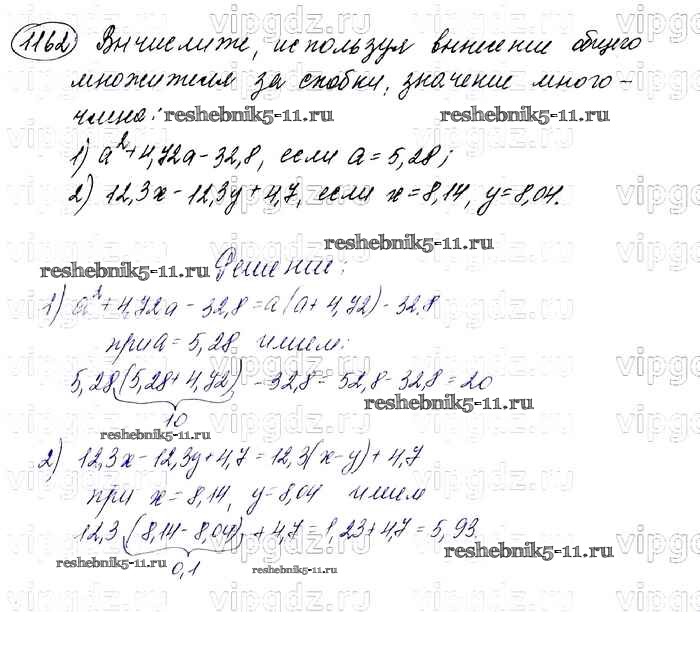 1162 Вычислите, используя вынесение общего
множителя за скобки, значение много-
члена:
reshebnik5-11.ru reshebnik5-11.ru
1) a²+4,72a-32,8, если a=5,28;
2) 12,3x-12,3y+4,7, если x=8,14, y=8,04.
reshebnik5-11.ru
reshebnik5-11.ru Решение:
1) a²+4,72a-32,8=a(a+4,72)-32,8
при a=5,28 имеем:
5,28(5,28+4,72)-32,8=52,8-32,8=20
10
reshebnik5-11.ru
reshebnik5-11.ru
2) 12,3x-12,3y+4,7=12,3(x-y)+4,7
при x=8,14, y=8,04 имеем
12,3(8,14-8,04)+4,7=1,23+4,7=5,93.
0,1
reshebnik5-11.ru
reshebnik5-11.ru reshebnik5-11.ru
vipgdz.ru